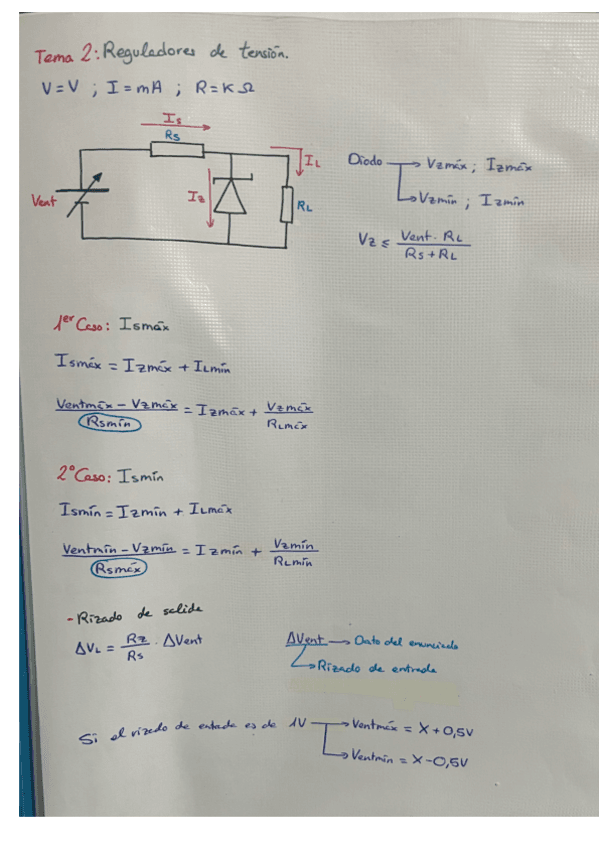 Tema 2: Reguladores de tensión.
V = V ; I = mA ; R = KΩ
Is
Rs
IL
Vent
Iz
RL
Diodo → Vzmáx ; Izmáx
Vzmín ; Izmín
Vz ≤ Vent · RL / Rs + RL
1er Caso: Ismáx
Ismáx = Izmáx + ILmín
Ventmáx - Vzmáx / Rsmín = Izmáx + Vzmáx / RLmáx
2º Caso: Ismín
Ismín = Izmín + ILmáx
Ventmín - Vzmín / Rsmáx = Izmín + Vzmín / RLmín
- Rizado de salida
ΔVL = Rz / Rs · ΔVent
ΔVent → Dato del enunciado
→ Rizado de entrada
Si el rizado de entada es de 1V → Ventmáx = X + 0,5V
→ Ventmín = X - 0,5V